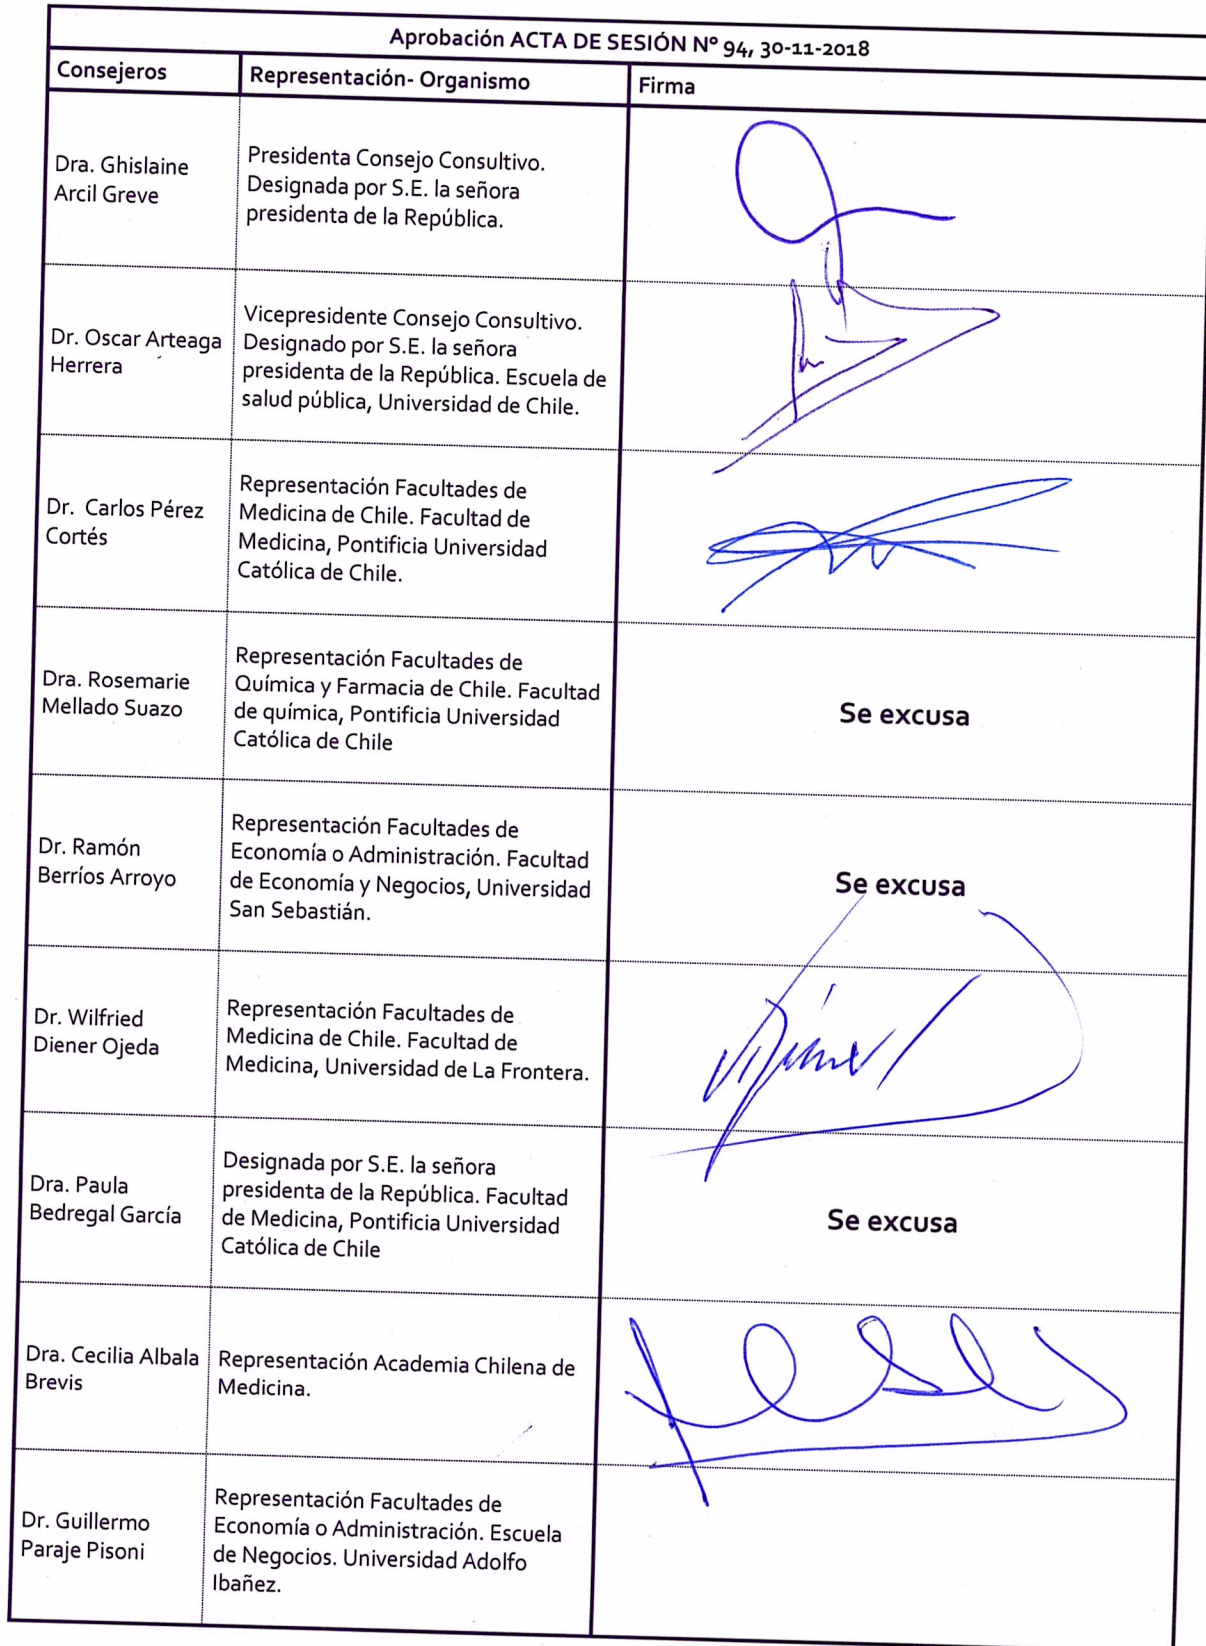 Aprobación ACTA DE SESIÓN Nº 94, 30-11-2018
Consejeros
Representación- Organismo
Firma
Dra. Ghislaine
Arcil Greve
Presidenta Consejo Consultivo.
Designada por S.E. la señora
presidenta de la República.
Dr. Oscar Arteaga
Herrera
Vicepresidente Consejo Consultivo.
Designado por S.E. la señora
presidenta de la República. Escuela de
salud pública, Universidad de Chile.
Dr. Carlos Pérez
Cortés
Representación Facultades de
Medicina de Chile. Facultad de
Medicina, Pontificia Universidad
Católica de Chile.
Dra. Rosemarie
Mellado Suazo
Representación Facultades de
Química y Farmacia de Chile. Facultad
de química, Pontificia Universidad
Católica de Chile
Se excusa
Dr. Ramón
Berríos Arroyo
Representación Facultades de
Economía o Administración. Facultad
de Economía y Negocios, Universidad
San Sebastián.
Se excusa
Dr. Wilfried
Diener Ojeda
Representación Facultades de
Medicina de Chile. Facultad de
Medicina, Universidad de La Frontera.
Dra. Paula
Bedregal García
Designada por S.E. la señora
presidenta de la República. Facultad
de Medicina, Pontificia Universidad
Católica de Chile
Se excusa
Dra. Cecilia Albala
Brevis
Representación Academia Chilena de
Medicina.
Dr. Guillermo
Paraje Pisoni
Representación Facultades de
Economía o Administración. Escuela
de Negocios. Universidad Adolfo
Ibañez.